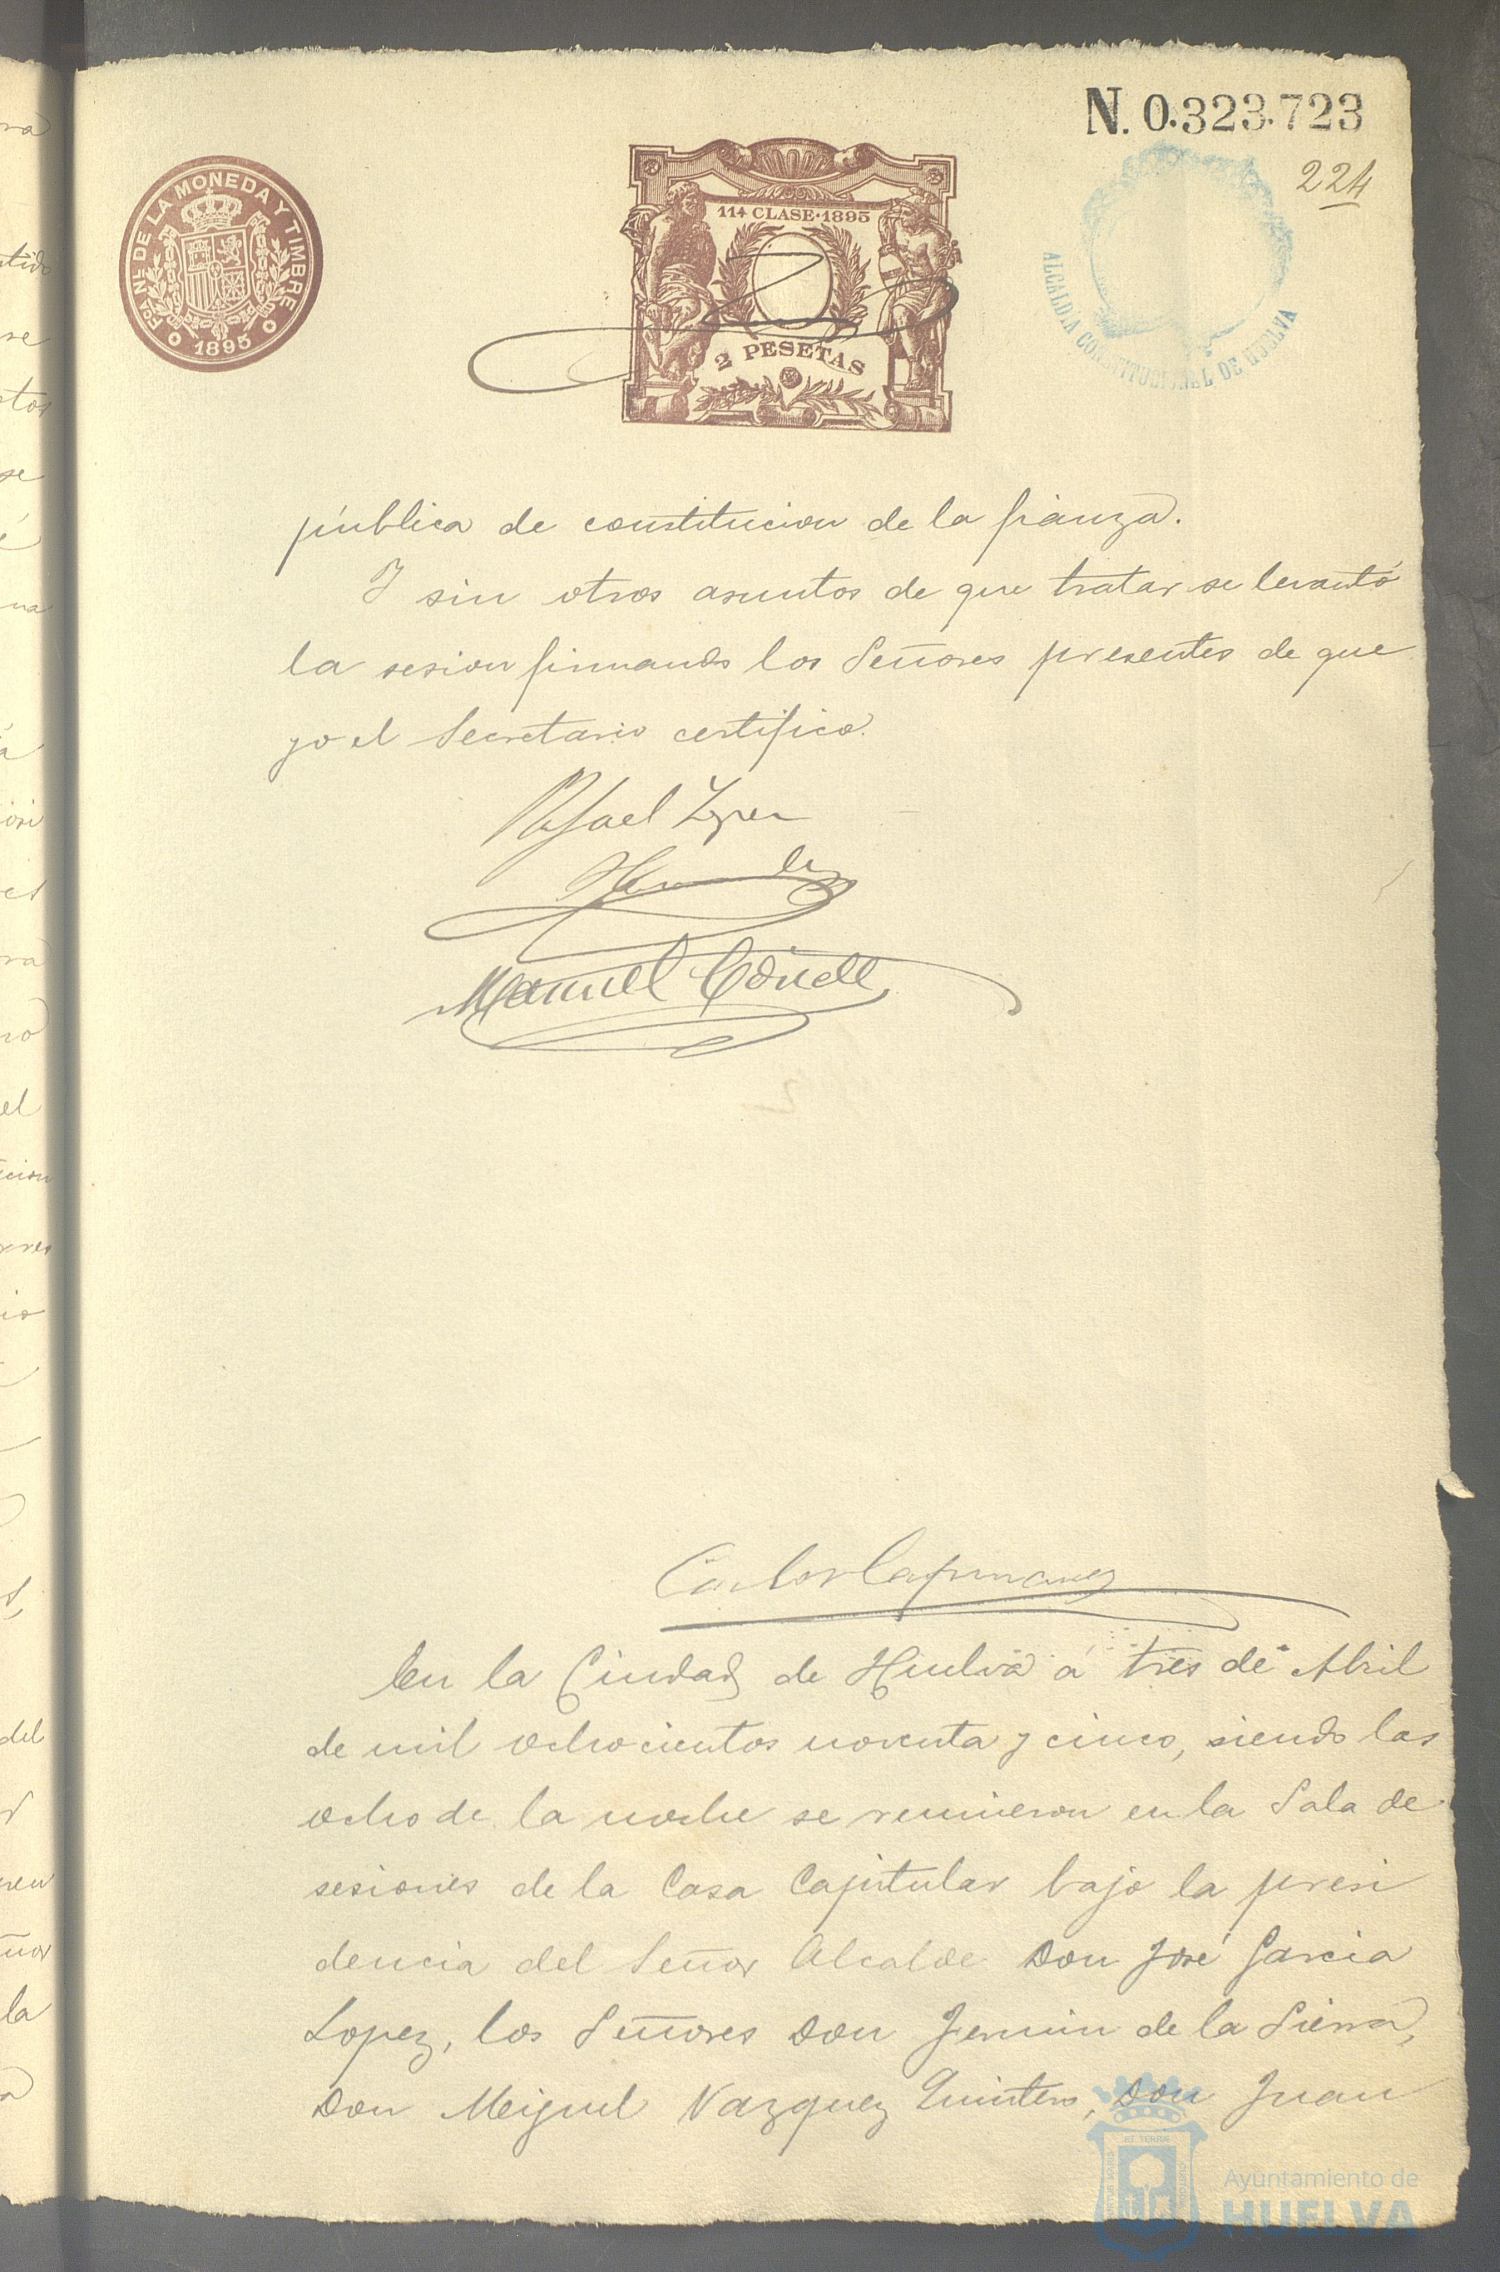 N. 0.323.723
224
FCA NL DE LA MONEDA Y TIMBRE
1895
11ª CLASE·1895
2 PESETAS
ALCALDIA CONSTITUCIONAL DE HUELVA
pública de constitucion de la fianza.
Y sin otros asuntos de que tratar se levantó
la sesion firmando los Señores presentes de que
yo el Secretario certifico.
Rafael Lopez
Hernandez
Manuel
Carlos
En la Ciudad de Huelva á tres de Abril
de mil ochocientos noventa y cinco, siendo las
ocho de la noche se reunieron en la Sala de
sesiones de la Casa Capitular bajo la presi
dencia del Señor Alcalde Don José Garcia
Lopez, los Señores Don Fermin de la Sierra,
Don Miguel Vazquez Quintero, Don Juan
Ayuntamiento de
HUELVA